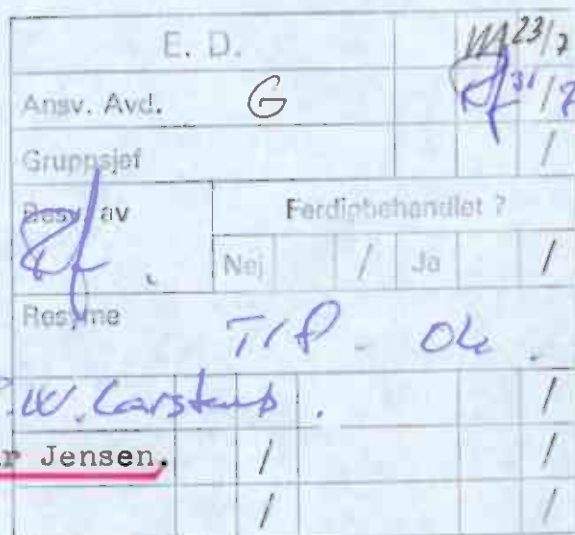 E. D. 23/7
Ansv. Avd. G 31/7
Gruppsjef /
Besv. av Ferdigbehandlet ?
Nej / Ja /
Resyme T/P - Ok .
W. Carstens . /
Jensen. / /
/ /